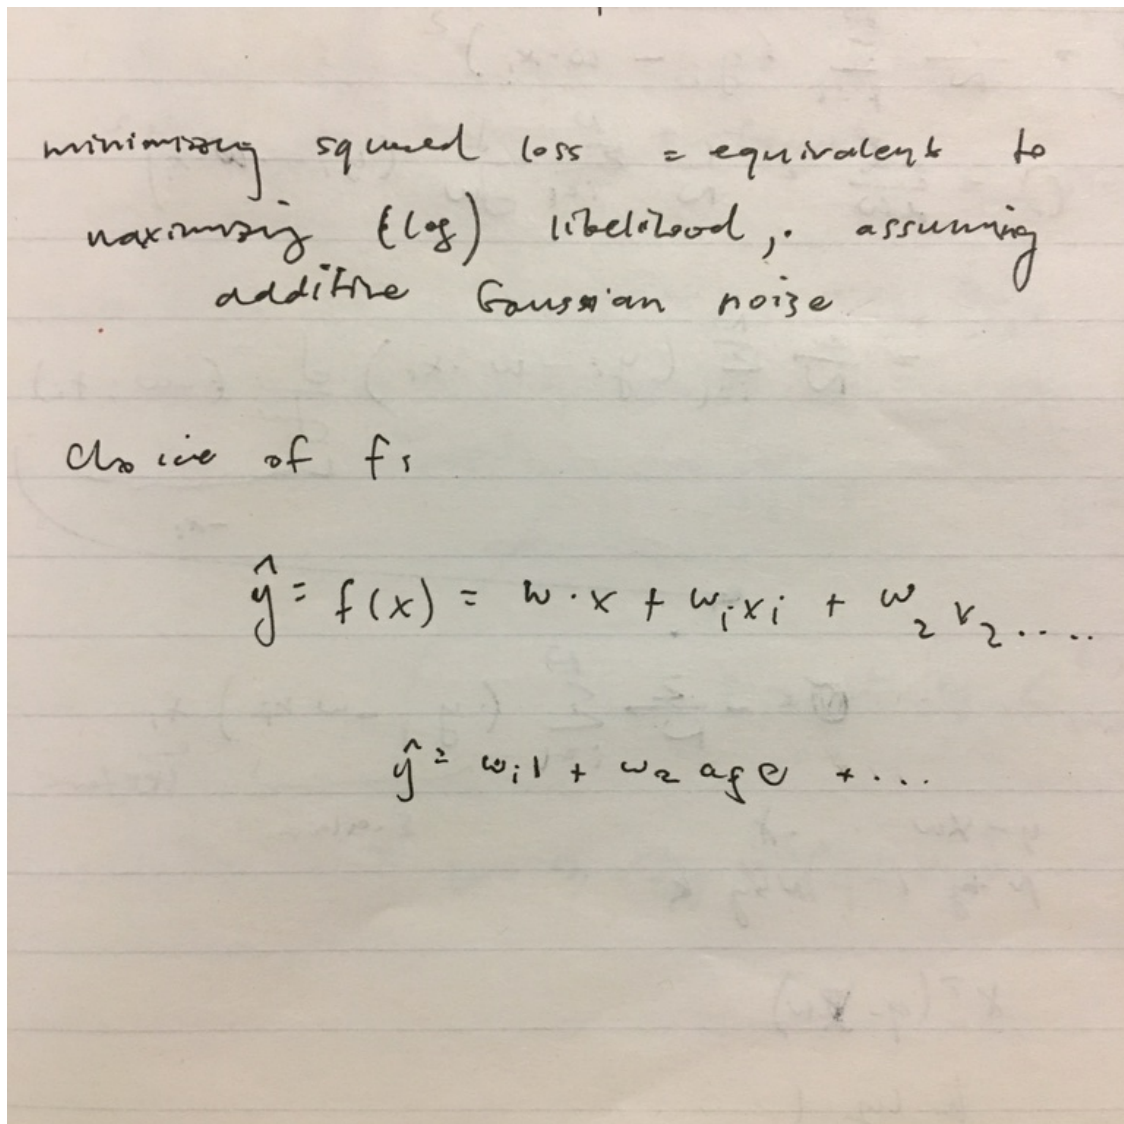 minimizing squared loss = equivalent to
maximizing (log) likelihood, assuming
additive Gaussian noize
Choice of f:
ŷ = f(x) = w · x + wᵢxᵢ + w₂x₂ ....
ŷ = wᵢ1 + w₂ age + ...